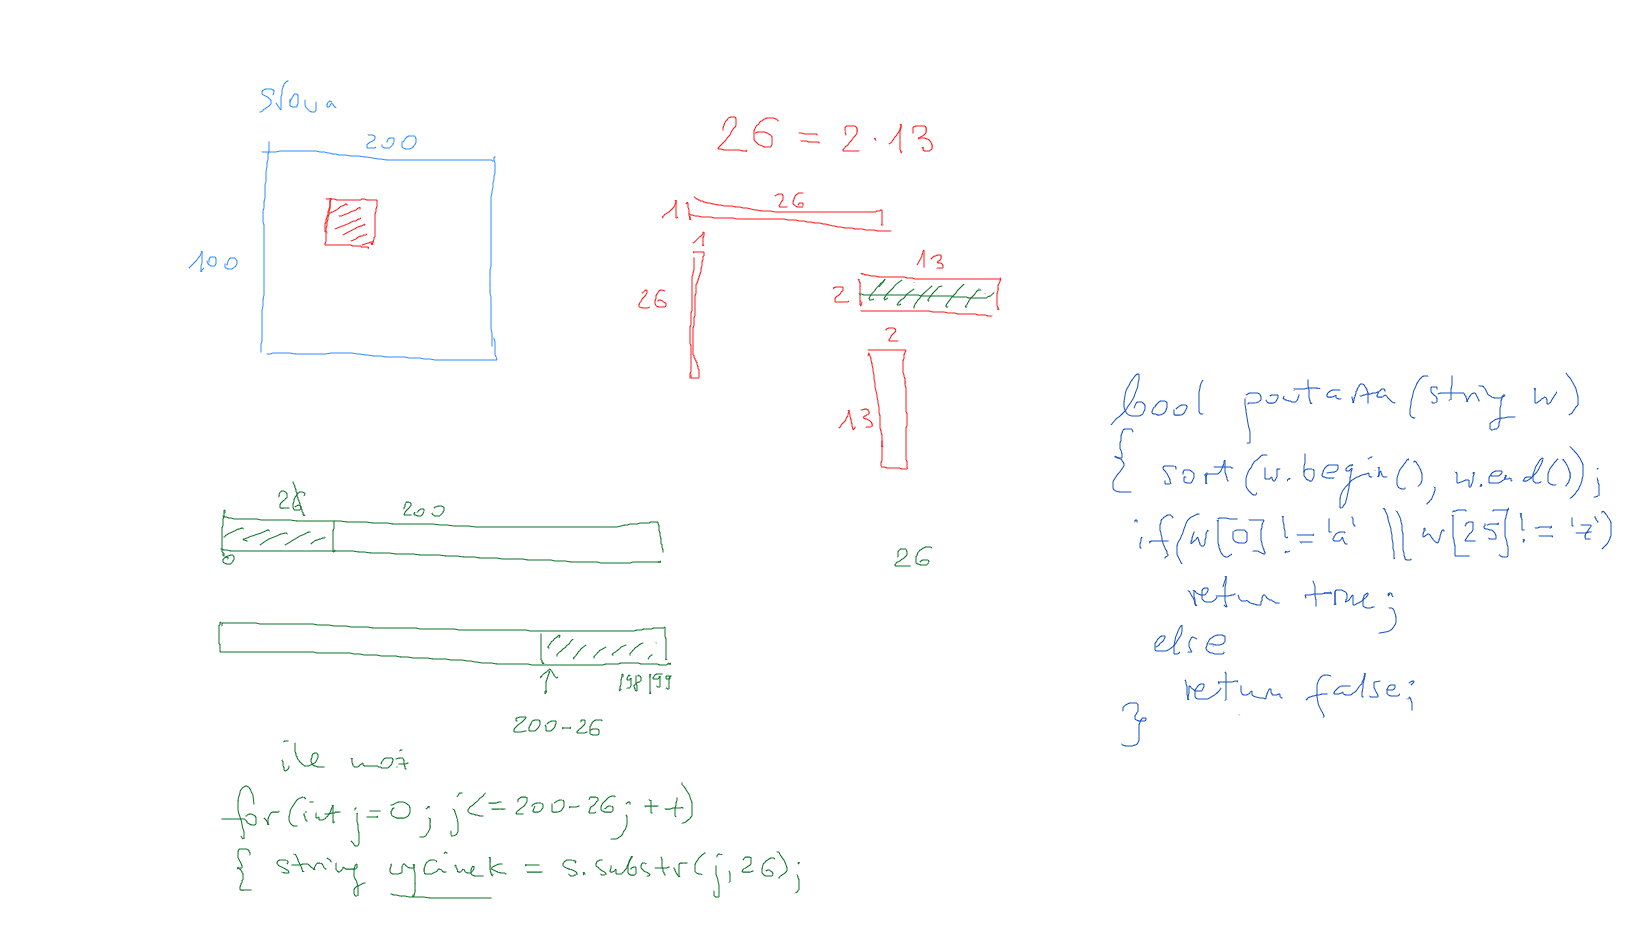 słowa
200
100
26 = 2·13
1 26
1
26
13
2
2
13
26 200
0
26
198 199
200-26
ile moż
for(int j=0; j<=200-26; ++)
{ string wycinek = s.substr(j,26);
bool powtarza(string w)
{ sort(w.begin(), w.end());
if(w[0]!='a' || w[25]!='z')
return true;
else
return false;
}